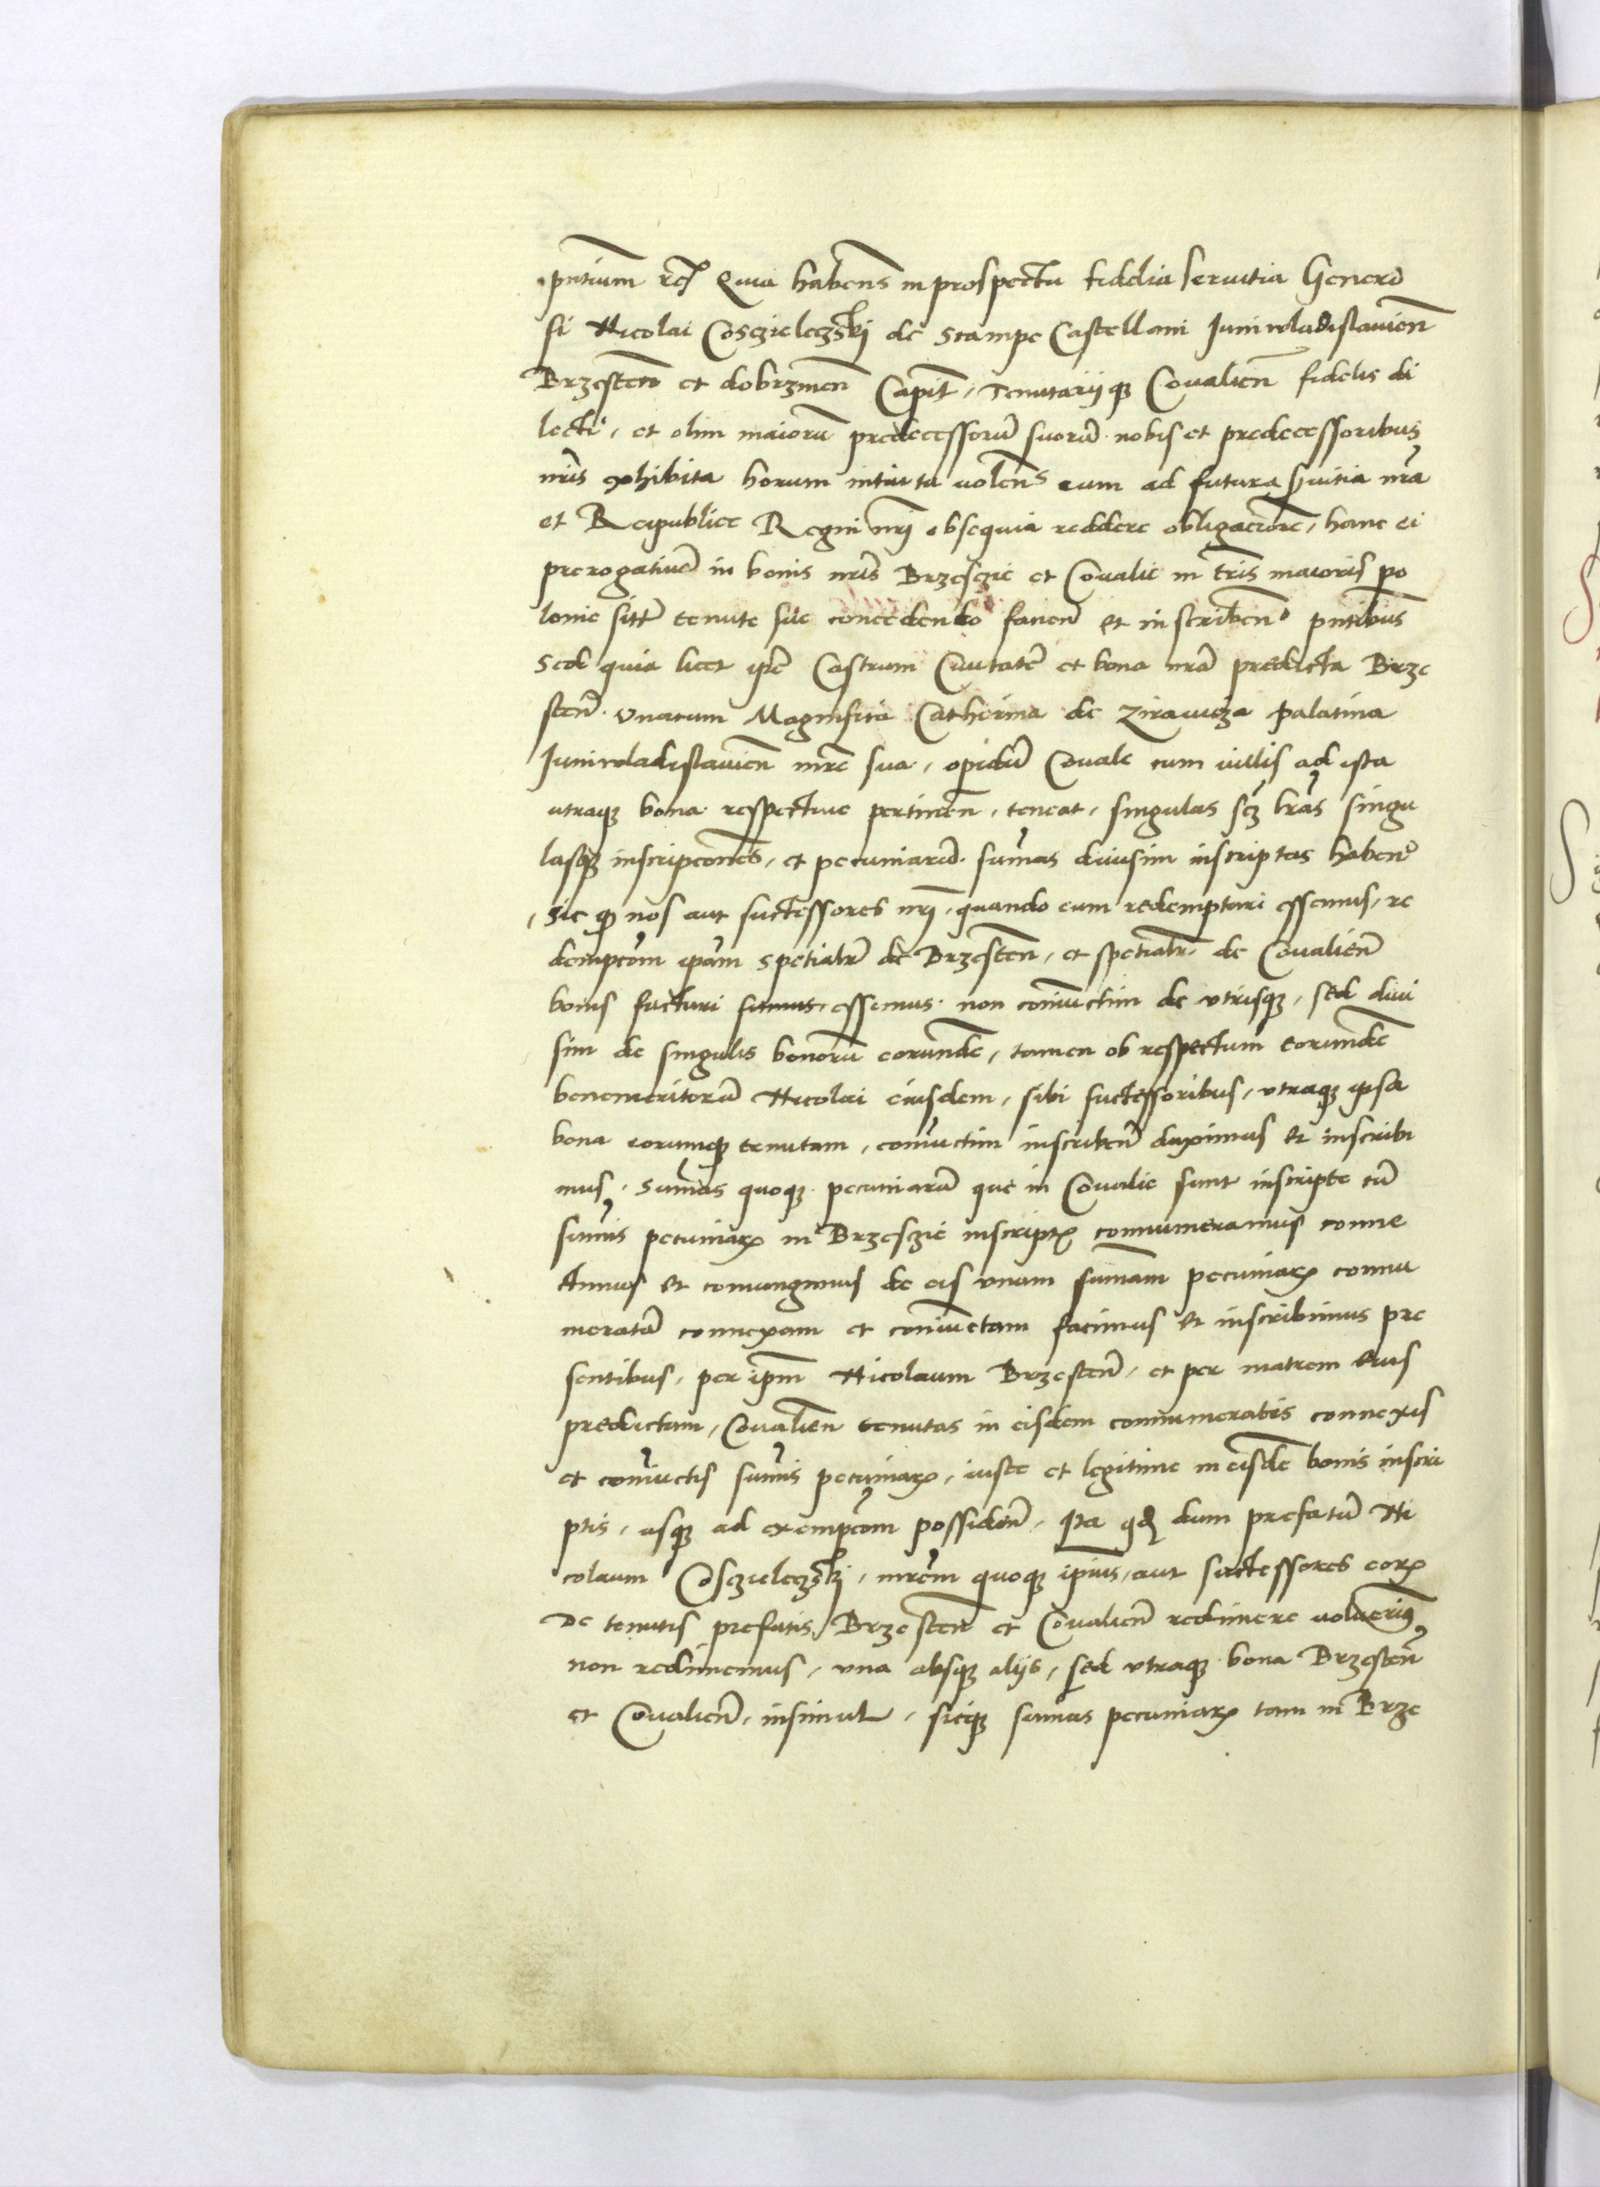 pntium etc Quia habens in prospectu fidelia seruitia Genero
si Nicolai Cosczieleczski de Scampe Castellani Iuniwladislauien
Brzesten et dobrzinen Capit, Tenutarijque Coualien fidelis di
lecti, et olim maiorum predecessorum suorum nobis et predecessoribus
nris exhibita horum intuitu volens eum ad futura seruitia nra
et Reipublice Regni nri obsequia reddere obligaciore, hanc ei
prerogatiua in bonis nris Brzesczie et Coualie in tris maioris po
lonie sitis tenute sue concedendo facien et inscriben pntibus
Sed quia licet ipse Castrum Ciuitate et bona nra predicta Brze
sten. vnacum Magnifica Catherina de Palatina
Iuniwladislauien mre sua, opidu Couale cum villis ad ista
utraque bona respectiue pertinen, teneat, singulas scz lras singu
lasque inscripcones, et pecuniaru sumas diuisim inscriptas haben
, sic quod nos aut successores nri, quando eum redempturi essemus, re
dempcom ipam spetialr de Brzesten, et spetialr de Coualien
bonis facturi sumus, essemus non coniunctim de vtrisque, sed diui
sim de singulis bonoru eorunde, tamen ob respectum eorunde
benemeritoru Nicolai eiusdem, sibi successoribus, vtraque ipsa
bona eorumque tenutam, coniunctim inscriben duximus et inscribi
mus, Sumas quoque pecuniaru que in Coualie sunt inscripte cu
sumis pecuniarum in Brzesczie inscriptis connumeramus conne
ctimus et coniungimus de eis vnam sumam pecuniarum connu
meratam connexam et coniunctam facimus et inscribimus pre
sentibus, per ipm Nicolaum Brzesten, et per matrem eius
predictam, Coualien tenutas in eisdem connumeratis connexis
et coniunctis sumis pecuniarum, iuste et legitime in eisde bonis inscri
ptis, usque ad exempcom possiden, Ita quod dum prefatu Ni
colaum Cosczieleczski, mrem quoque ipius, aut successores eorum
De tenutis prefatis Brzesten et Coualien redimere voluerimus
non redimemus, vna absque alijs, sed vtraque bona Brzesten
et Coualien, insimul, sicque sumas pecuniarum tam in Brze